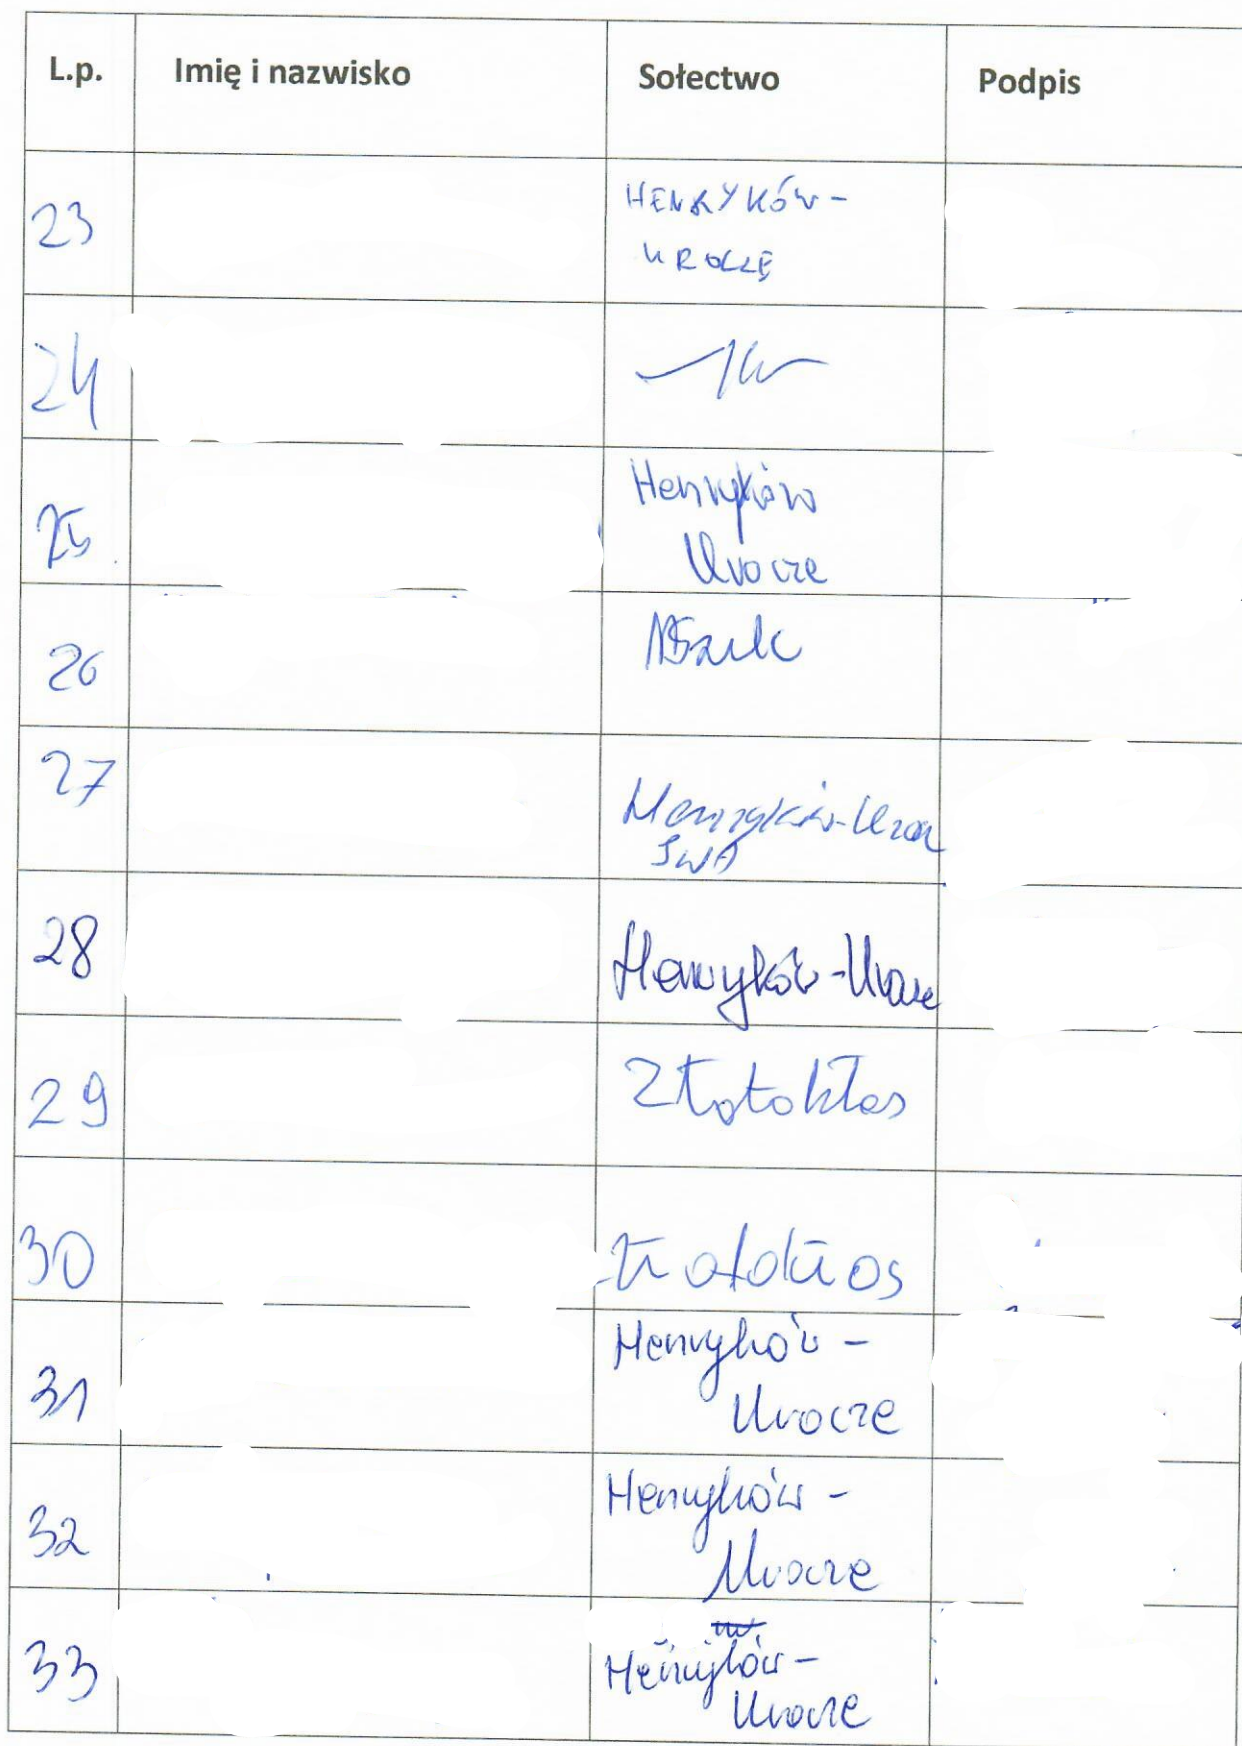 L.p. Imię i nazwisko Sołectwo Podpis
23 HENRYKÓW -
UROCZE
24
25 Henryków
Urocze
26
27
28 Henryków - Urocze
29 Złotokłos
30
31 Henryków -
Urocze
32 Henryków -
Urocze
33 Henryków -
Urocze